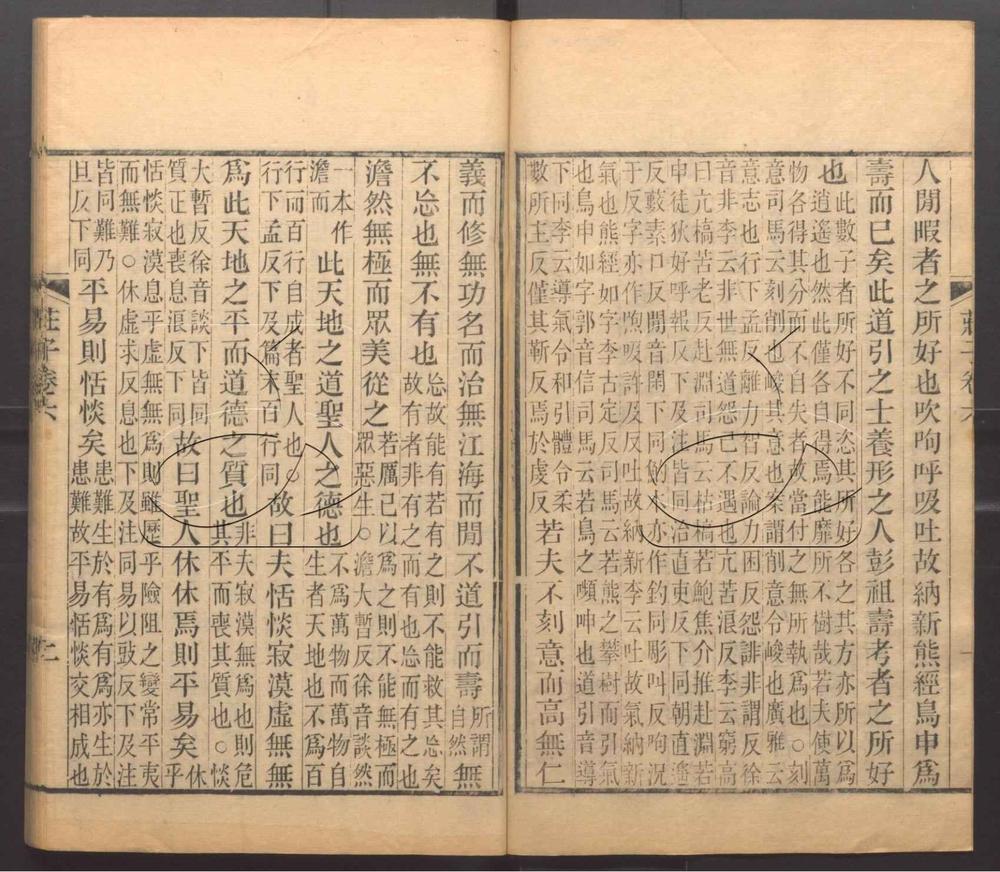 人閒暇者之所好也吹呴呼吸吐故納新熊經鳥申爲
壽而已矣此道引之士養形之人彭祖壽考者之所好
也
此數子者所好不同恣其所好各之其方亦所以爲
逍遙也然此僅各自得焉能靡所不樹哉若夫使萬
物各得其分而不自失者故當付之無所執爲也○刻
意司馬云刻削也峻其意也案謂削意令峻也廣雅云
意志也行下孟反離力智反論力困反怨誹非謂反徐
音非李云非世無道怨己不遇也亢苦浪反李云窮高
曰亢槁苦老反赴淵司馬云枯槁若鮑焦介推赴淵若
申徒狄好呼報反下及注皆同治直吏反下同朝直遙
反藪素口反閒音閑下同釣本亦作鈞同彫叫反呴況
于反字亦作煦吸許及反吐故納新李云吐故氣納新
氣也熊經如字李古定反司馬云若熊之攀樹而引氣
也鳥申如字郭音信司馬云若鳥之嚬呻也道引音導
下同李云導氣令和引體令柔
數所主反僅其靳反焉於虔反
若夫不刻意而高無仁
莊子卷六
義而修無功名而治無江海而閒不道引而壽
所謂
自然
無
不忘也無不有也
忘故能有若有之則不能救其忘矣
故有者非有之而有也忘而有之也
澹然無極而眾美從之
若厲己以爲之則不能無極而
眾惡生○澹大暫反徐音談然
一本作
澹而
此天地之道聖人之德也
不爲萬物而萬物自
生者天地也不爲百
行而百行自成者聖人也○
行下孟反下及篇末百行同
故曰夫恬惔寂漠虛無無
爲此天地之平而道德之質也
非夫寂漠無爲也則危
其平而喪其質也○惔
大暫反徐音談下皆同
質正也喪息浪反下同
故曰聖人休休焉則平易矣
休
乎
恬惔寂漠息乎虛無無爲則雖歷乎險阻之變常平夷
而無難○休虛求反息也下及注同易以豉反下及注
皆同難乃
旦反下同
平易則恬惔矣
患難生於有爲有爲亦生於
患難故平易恬惔交相成也
莊子卷六
二